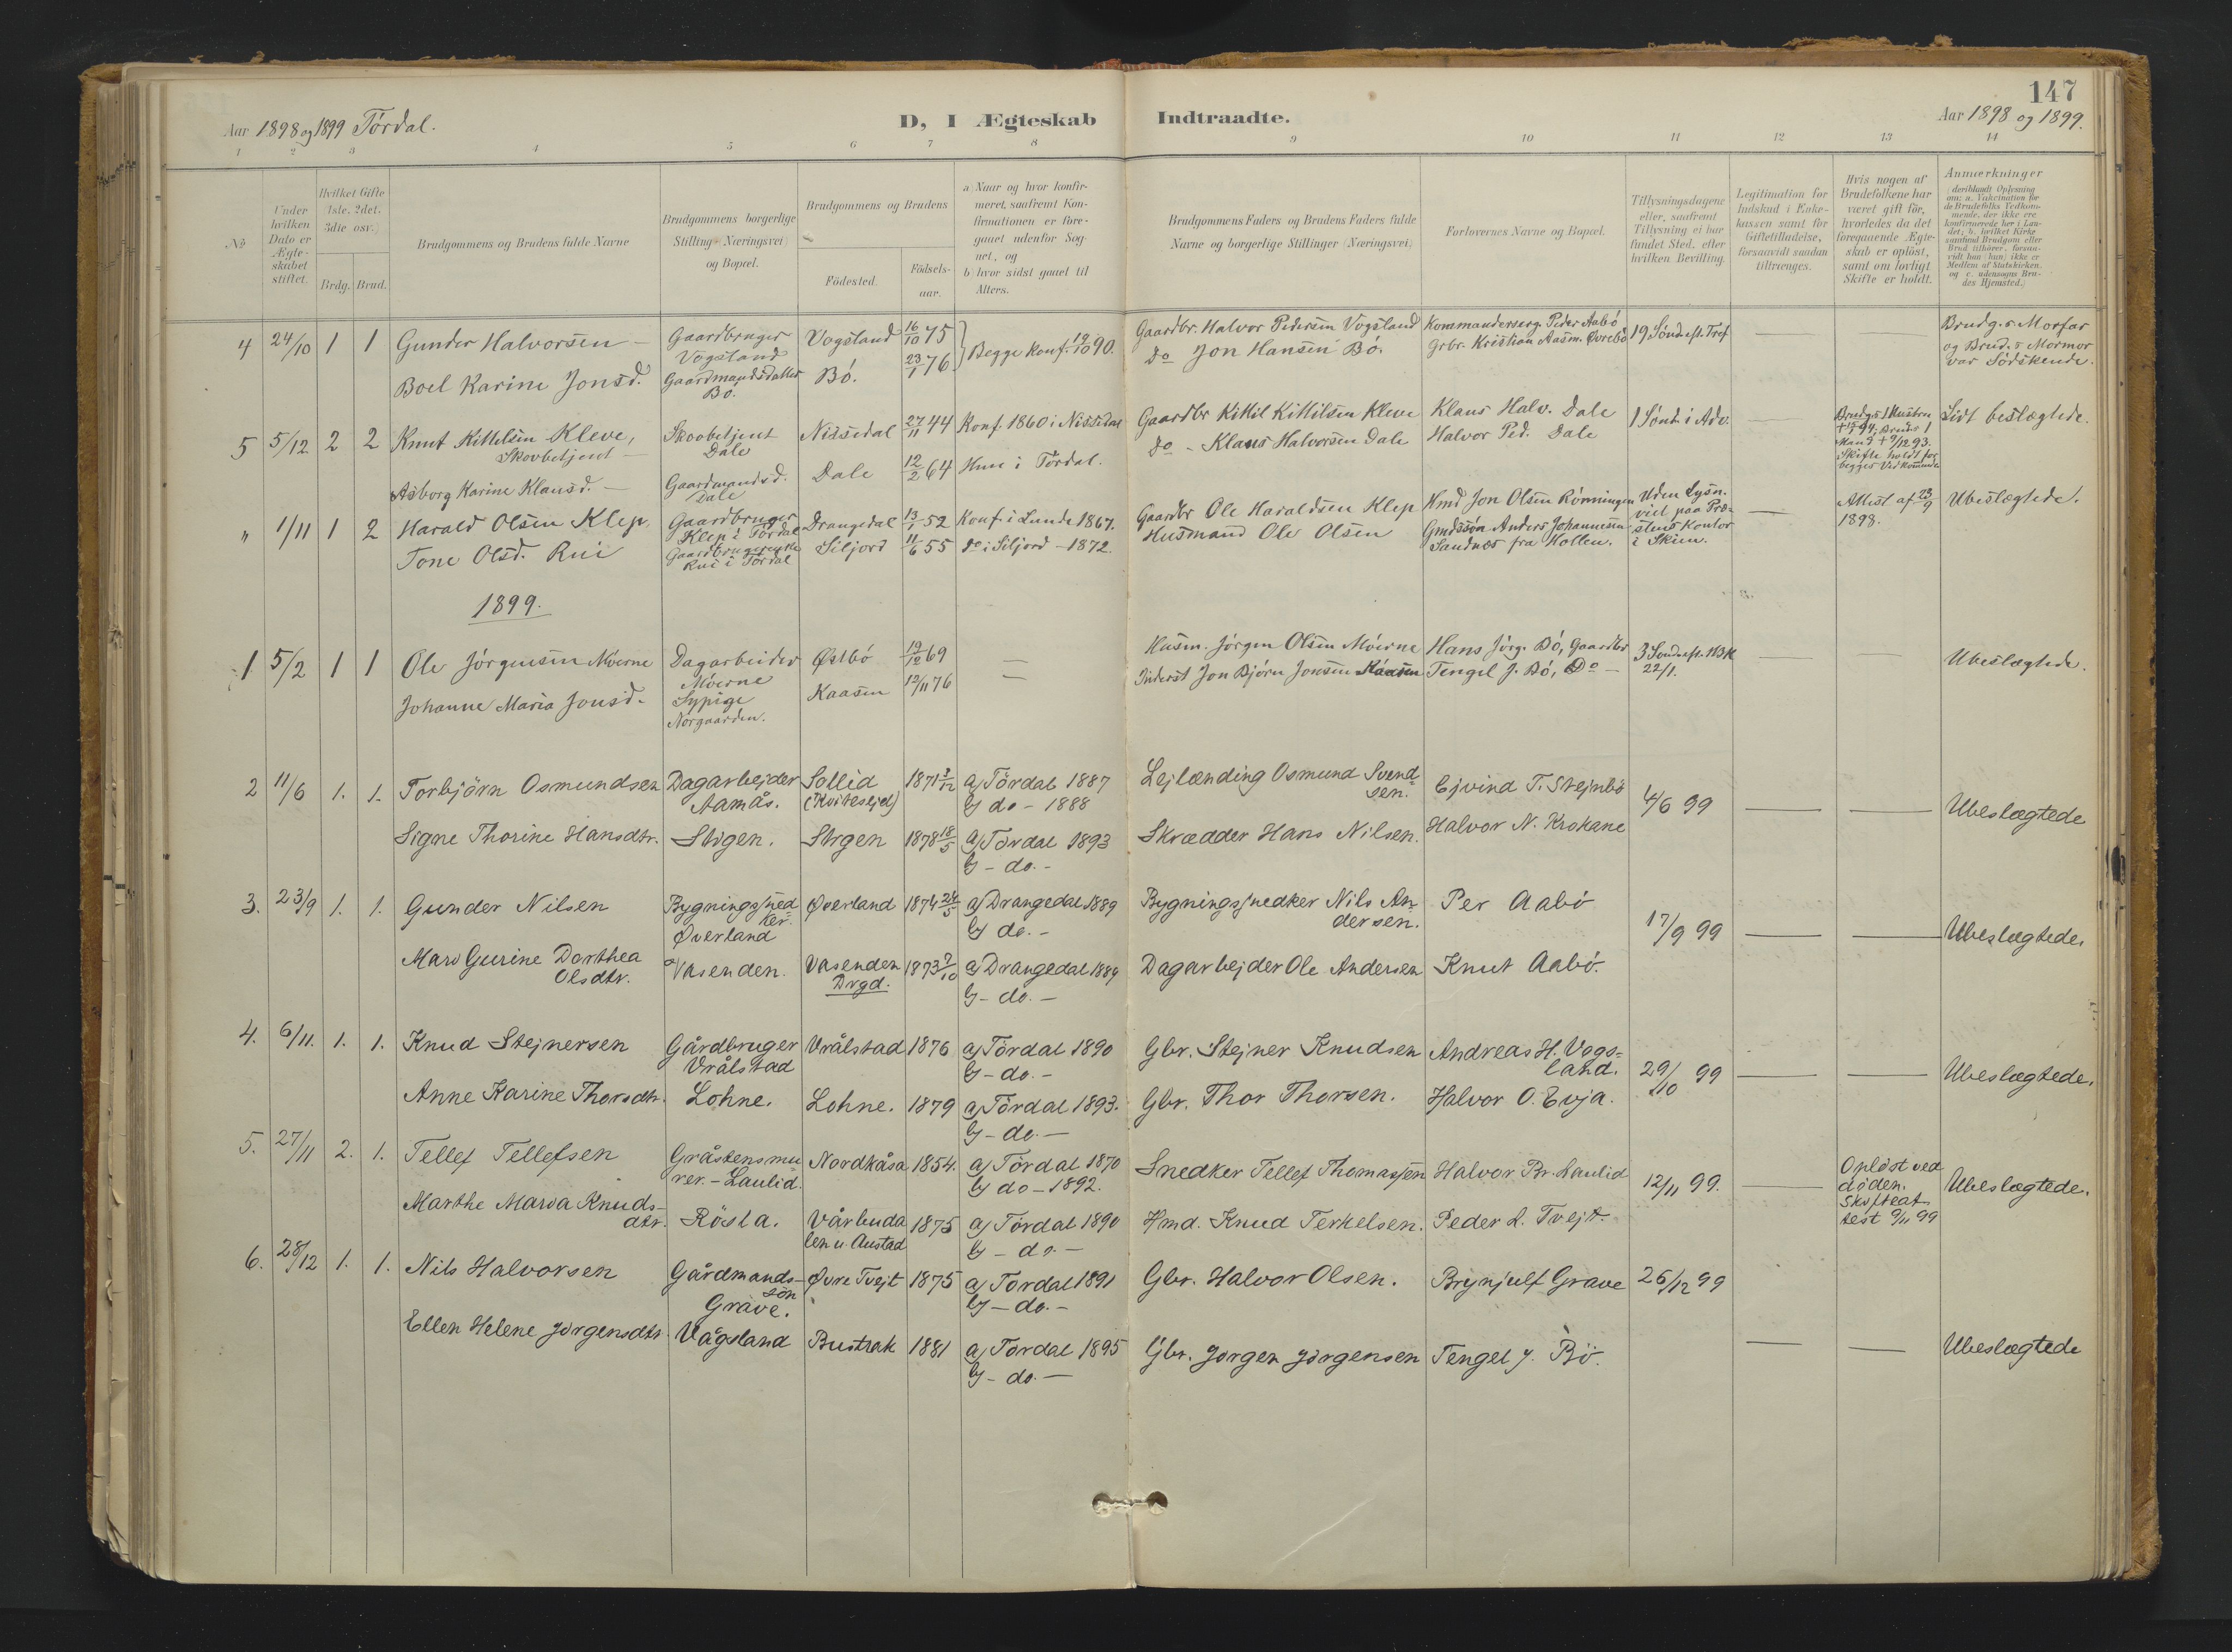 147
Aar 1898 og 1899 Tördal.
D, I Ægteskab Indtraadte.
Aar 1898 og 1899.
1 2 3 4 5 6 7 8 9 10 11 12 13 14
No
Under hvilken Dato er Ægteskabet stiftet.
Hvilket Gifte (1ste, 2det, 3die osv.)
Brdg. Brud.
Brudgommens og Brudens fulde Navne
Brudgommens borgerlige Stilling (Næringsvei) og Bopæl.
Brudgommens og Brudens
Födested.
Födselsaar.
a) Naar og hvor konfirmeret, saafremt Konfirmationen er foregaaet udenfor Sognet, og
b) hvor sidst gaaet til Alters.
Brudgommens Faders og Brudens Faders fulde Navne og borgerlige Stillinger (Næringsvei)
Forlovernes Navne og Bopæl.
Tillysningsdagene eller, saafremt Tillysning ei har fundet Sted, efter hvilken Bevilling.
Legitimation for Indskud i Enkekassen samt for Giftetilladelse, forsaavidt saadan tiltrænges.
Hvis nogen af Brudefolkene har været gift för, hvorledes da det foregaaende Ægteskab er oplöst, samt om lovligt Skifte er holdt.
Anmærkninger
(deriblandt Oplysning om: a. Vakcination for de Brudefolks Vedkommende, der ikke ere konfirmerede her i Landet; b. hvilket Kirkesamfund Brudgom eller Brud tilhörer, forsaavidt han (hun) ikke er Medlem af Statskirken, og c. udensogns Brudes Hjemsted.)
4 24/10 1 1 Gunder Halvorsen – Gaardbruger Vogsland Vogsland 16/10 75 Begge konf. 19/10 90. Gaardbr. Halvor Pedersen Vogsland Kommanderserg. Peder Aabö 19 Sönd. ef. Tref. —
Boel Karine Jonsd. Gaardmandsdatter Bö. Bö. 23/1 76 Do Jon Hansen Bö. Grbr. Kristian Aasm. Övrebö
Brudg.s Morfar og Brud.s Mormor var Södskende.
5 5/12 2 2 Knut Kittelsen Kleve, Skovbetjent – Skovbetjent Dale Nissedal 27/11 44 Konf. 1860 i Nissedal Gaardbr Kittil Kittilsen Kleve Klaus Halv. Dale 1 Sönd. i Adv. —
Asborg Karine Klausd. – Gaardmandsd. Dale Dale 12/2 64 Hun i Tördal. Do - Klaus Halvorsen Dale Halvor Ped. Dale
Skifte holdt for begges Vedkommende
Lidt beslægtede.
" 1/11 1 2 Harald Olsen Klep, Gaardbruger Klep i Tördal Drangedal 13/1 52 Konf. i Lunde 1867. Gaardbr Ole Haraldsen Klep Hmd Jon Olsen Rönningen Uden Lysn. viet paa Prostens Kontor i Skien. —
Tone Olsd. Rui Gaardbrugerenke Rui i Tördal Siljord 11/6 55 Do i Siljord – 1872. Husmand Ole Olsen Gmdssön Anders Johannesen Sandnes fra Hollen.
Attest af 23/9 1898.
Ubeslægtede.
1899.
1 5/2 1 1 Ole Jörgensen Möerne Dagarbeider Möerne Östbö 19/12 69 — Husm. Jörgen Olsen Möerne Hans Jörg. Bö, Gaardbr 3 Sönd. ef. H3K 22/1. — — Ubeslægtede.
Johanne Maria Jonsd. Sypige Norgaarden. Kaasen 12/11 76 — Inderst Jon Björn Jonsen Kaasen Tengel J. Bö, Do –
2 11/6 1. 1. Torbjörn Osmundsen Dagarbejder Aamås. Sollid (Kviteseid) 1871 3/12 a) Tördal 1887 b) do – 1888 Lejlænding Osmund Svendsen. Ejvind T. Stejnbö 4/6 99 — — Ubeslægtede
Signe Thorine Hansdtr. Stigen. Stigen 1878 18/5 a) Tördal 1893 b) – do. – Skrædder Hans Nilsen. Halvor N. Krokane
3. 23/9 1. 1. Gunder Nilsen Bygningssnedker Överland Överland 1874 24/5 a) Drangedal 1889 b) do. – Bygningssnedker Nils Andersen. Per Aabö 17/9 99 — — Ubeslægtede.
Mari Gurine Dorthea Olsdtr. Vasenden. Vasenden Drgd. 1873 7/10 a) Drangedal 1889 b) – do. – Dagarbejder Ole Andersen Knut Aabö.
4. 6/11. 1. 1. Knud Stejnersen Gårdbruger Vrålstad Vrålstad 1876 a) Tördal 1890 b) – do. – Gbr. Stejner Knudsen Andreas H. Vogsland. 29/10 99 — — Ubeslægtede.
Anne Karine Thorsdtr. Lohne. Lohne. 1879 a) Tördal 1893. b) – do. – Gbr. Thor Thorsen. Halvor O. Evja.
5. 27/11 2. 1. Tellef Tellefsen Gråstensmurer. – Laulid. Nordkåsa 1854. a) Tördal 1870 b) do – 1892. Snedker Tellef Thomassen Halvor Br. Laulid 12/11 99. — Oplöst ved döden. Skifteattest 9/11 99 Ubeslægtede.
Marthe Maria Knudsdtr. Rösla. Vårbudalen u. Austad 1875 a) Tördal 1890 b) – do. – Hmd. Knud Terkelsen. Peder L. Tvejt.
6. 28/12 1. 1. Nils Halvorsen Gårdmandssön Grave. Övre Tvejt 1875 a) Tördal 1891 b) – do. – Gbr. Halvor Olsen. Brynjulf Grave 26/12 99
Ellen Helene Jörgensdtr. Vågsland Bustrak 1881 a) Tördal 1895 b) – do. – Gbr. Jörgen Jörgensen Tengel J. Bö. — — Ubeslægtede